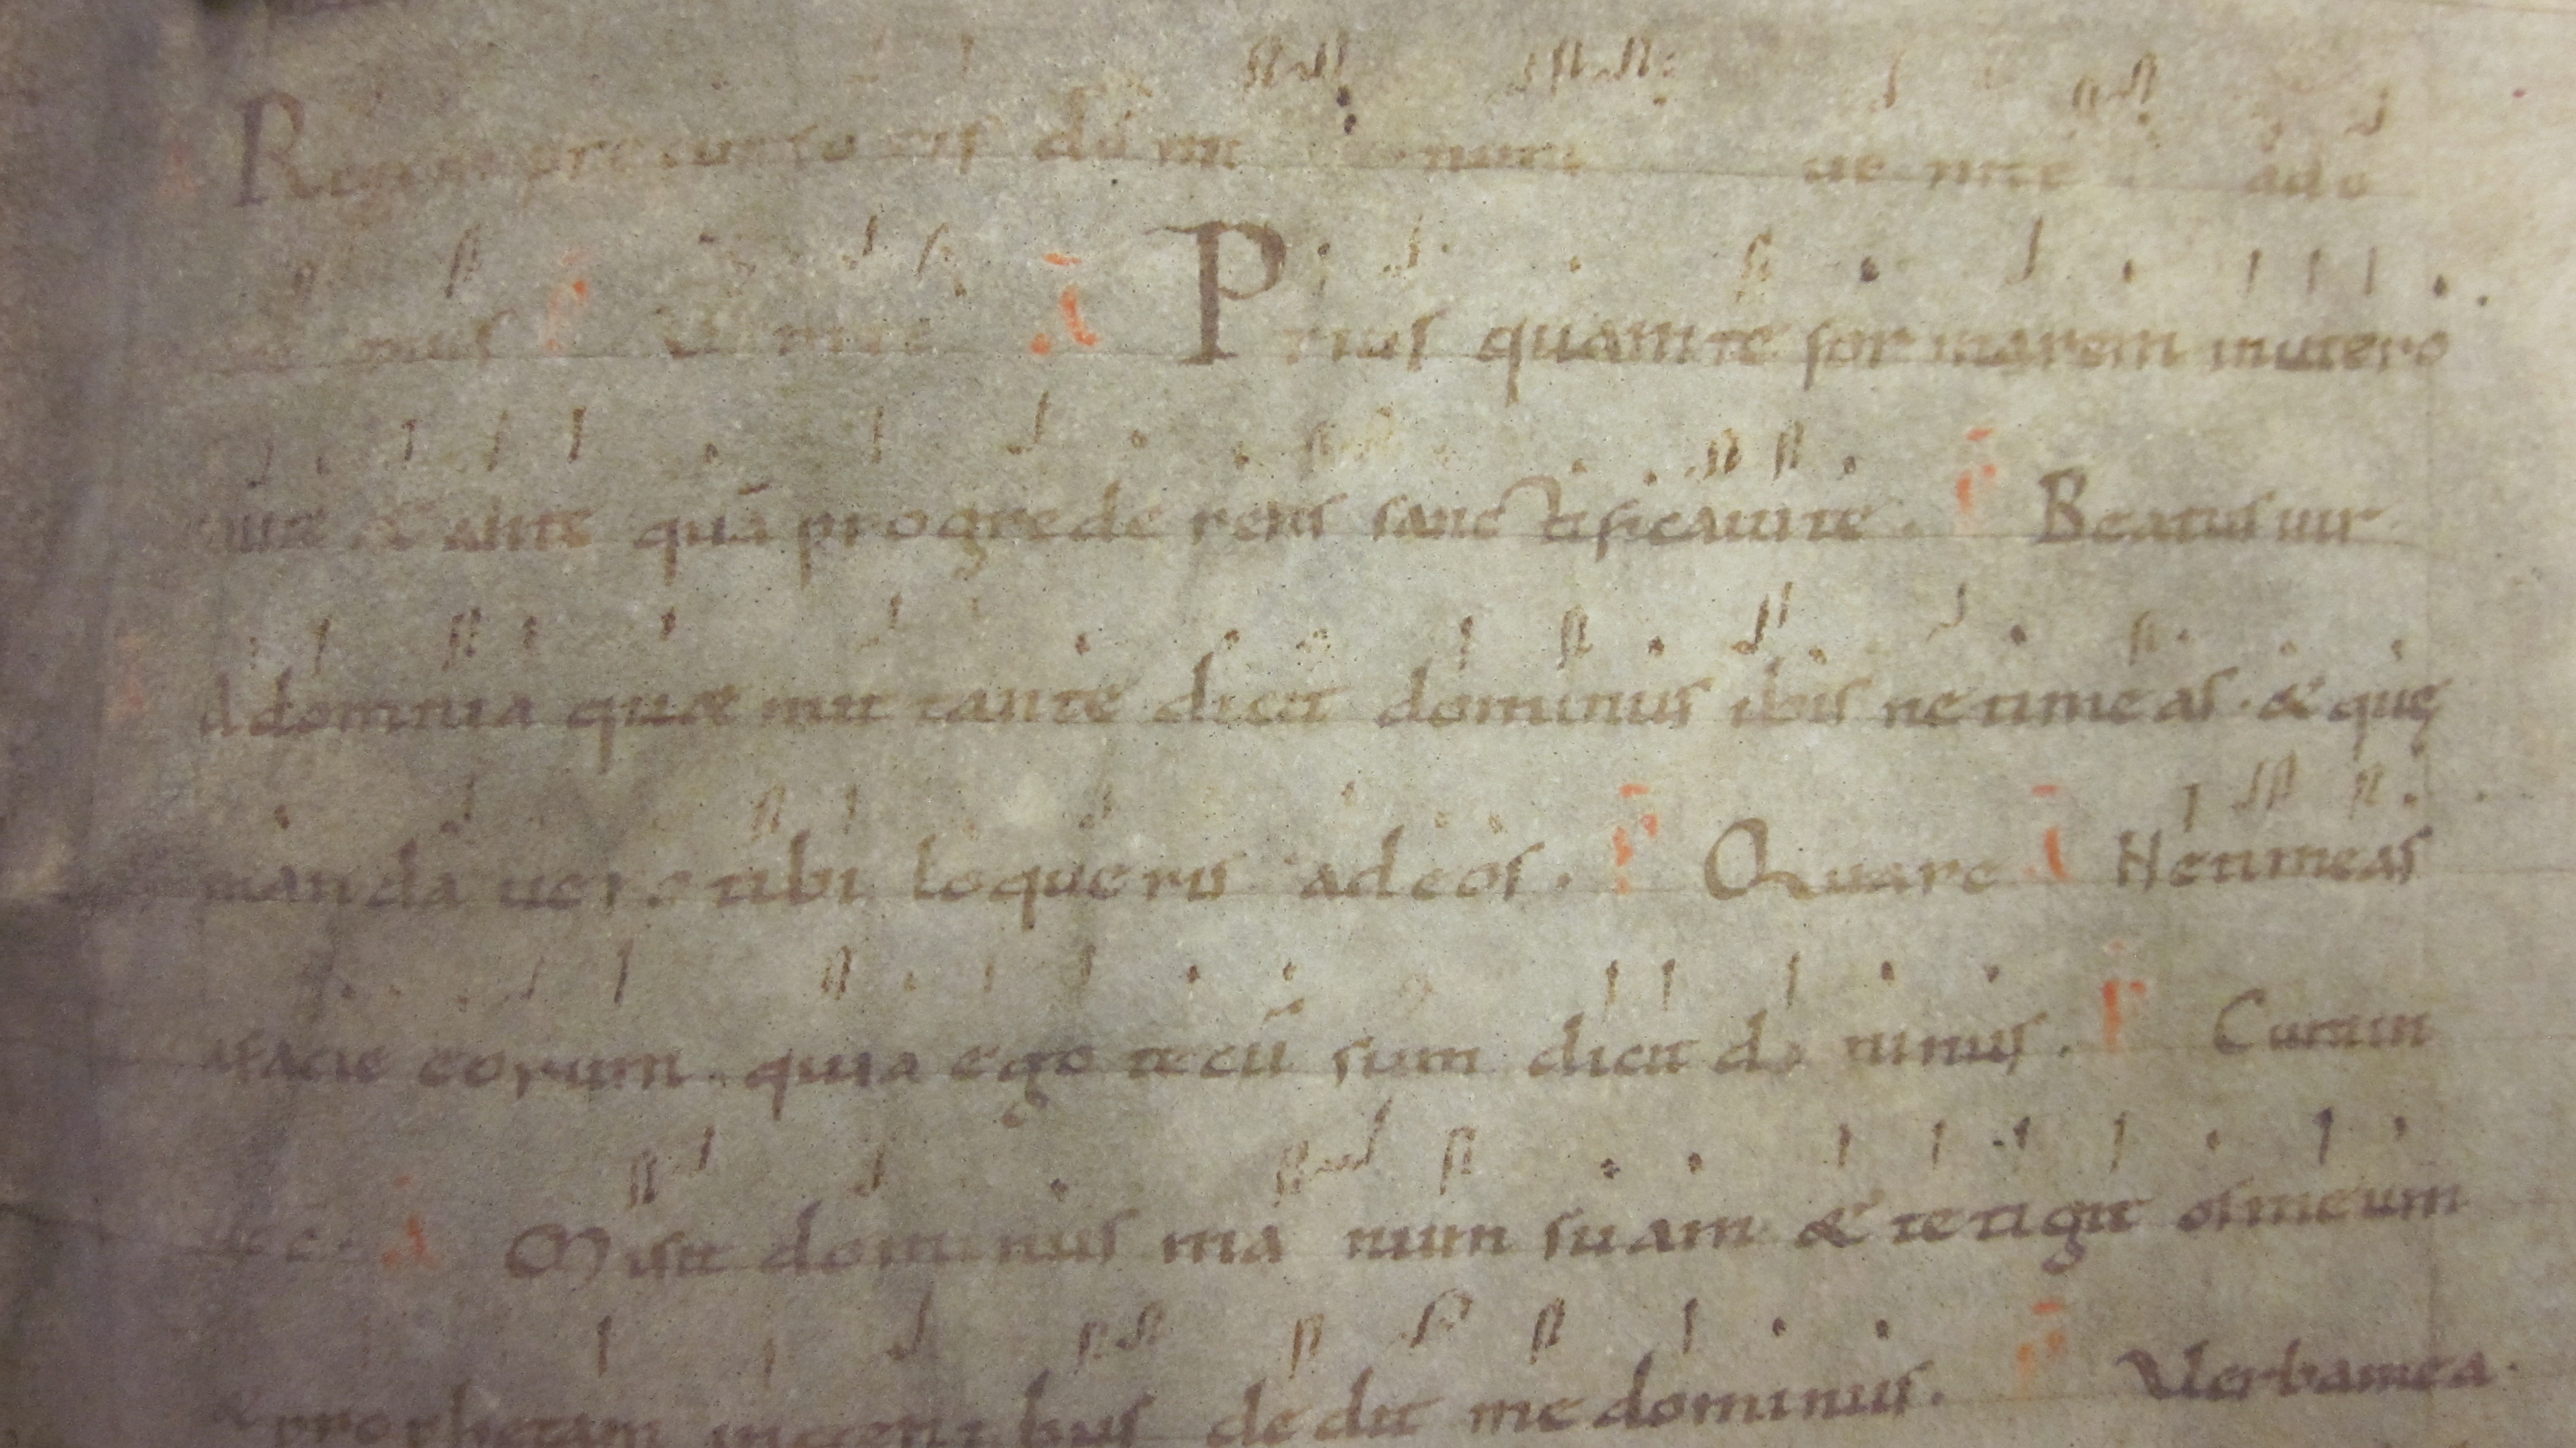 Regem precursoris dominum uenite ado
mus p̄ Venite Ā Prius quamte formarem inutero
& ante quā progrederens sanctificauite. p̄ Beatus uir
Adomnia quæ mittamte dicit dominus ibis netimeas. & quę
mandauero tibi loqueris adeos. p̄ Quare Ā Netimeas
afacie eorum quia ego tecū sum dicit dominus. p̄ Cumin
Ā Misit dominus manum suam & tetigit osmeum
& prophetam ingentibus dedit me dominus. p̄ Verbamea.